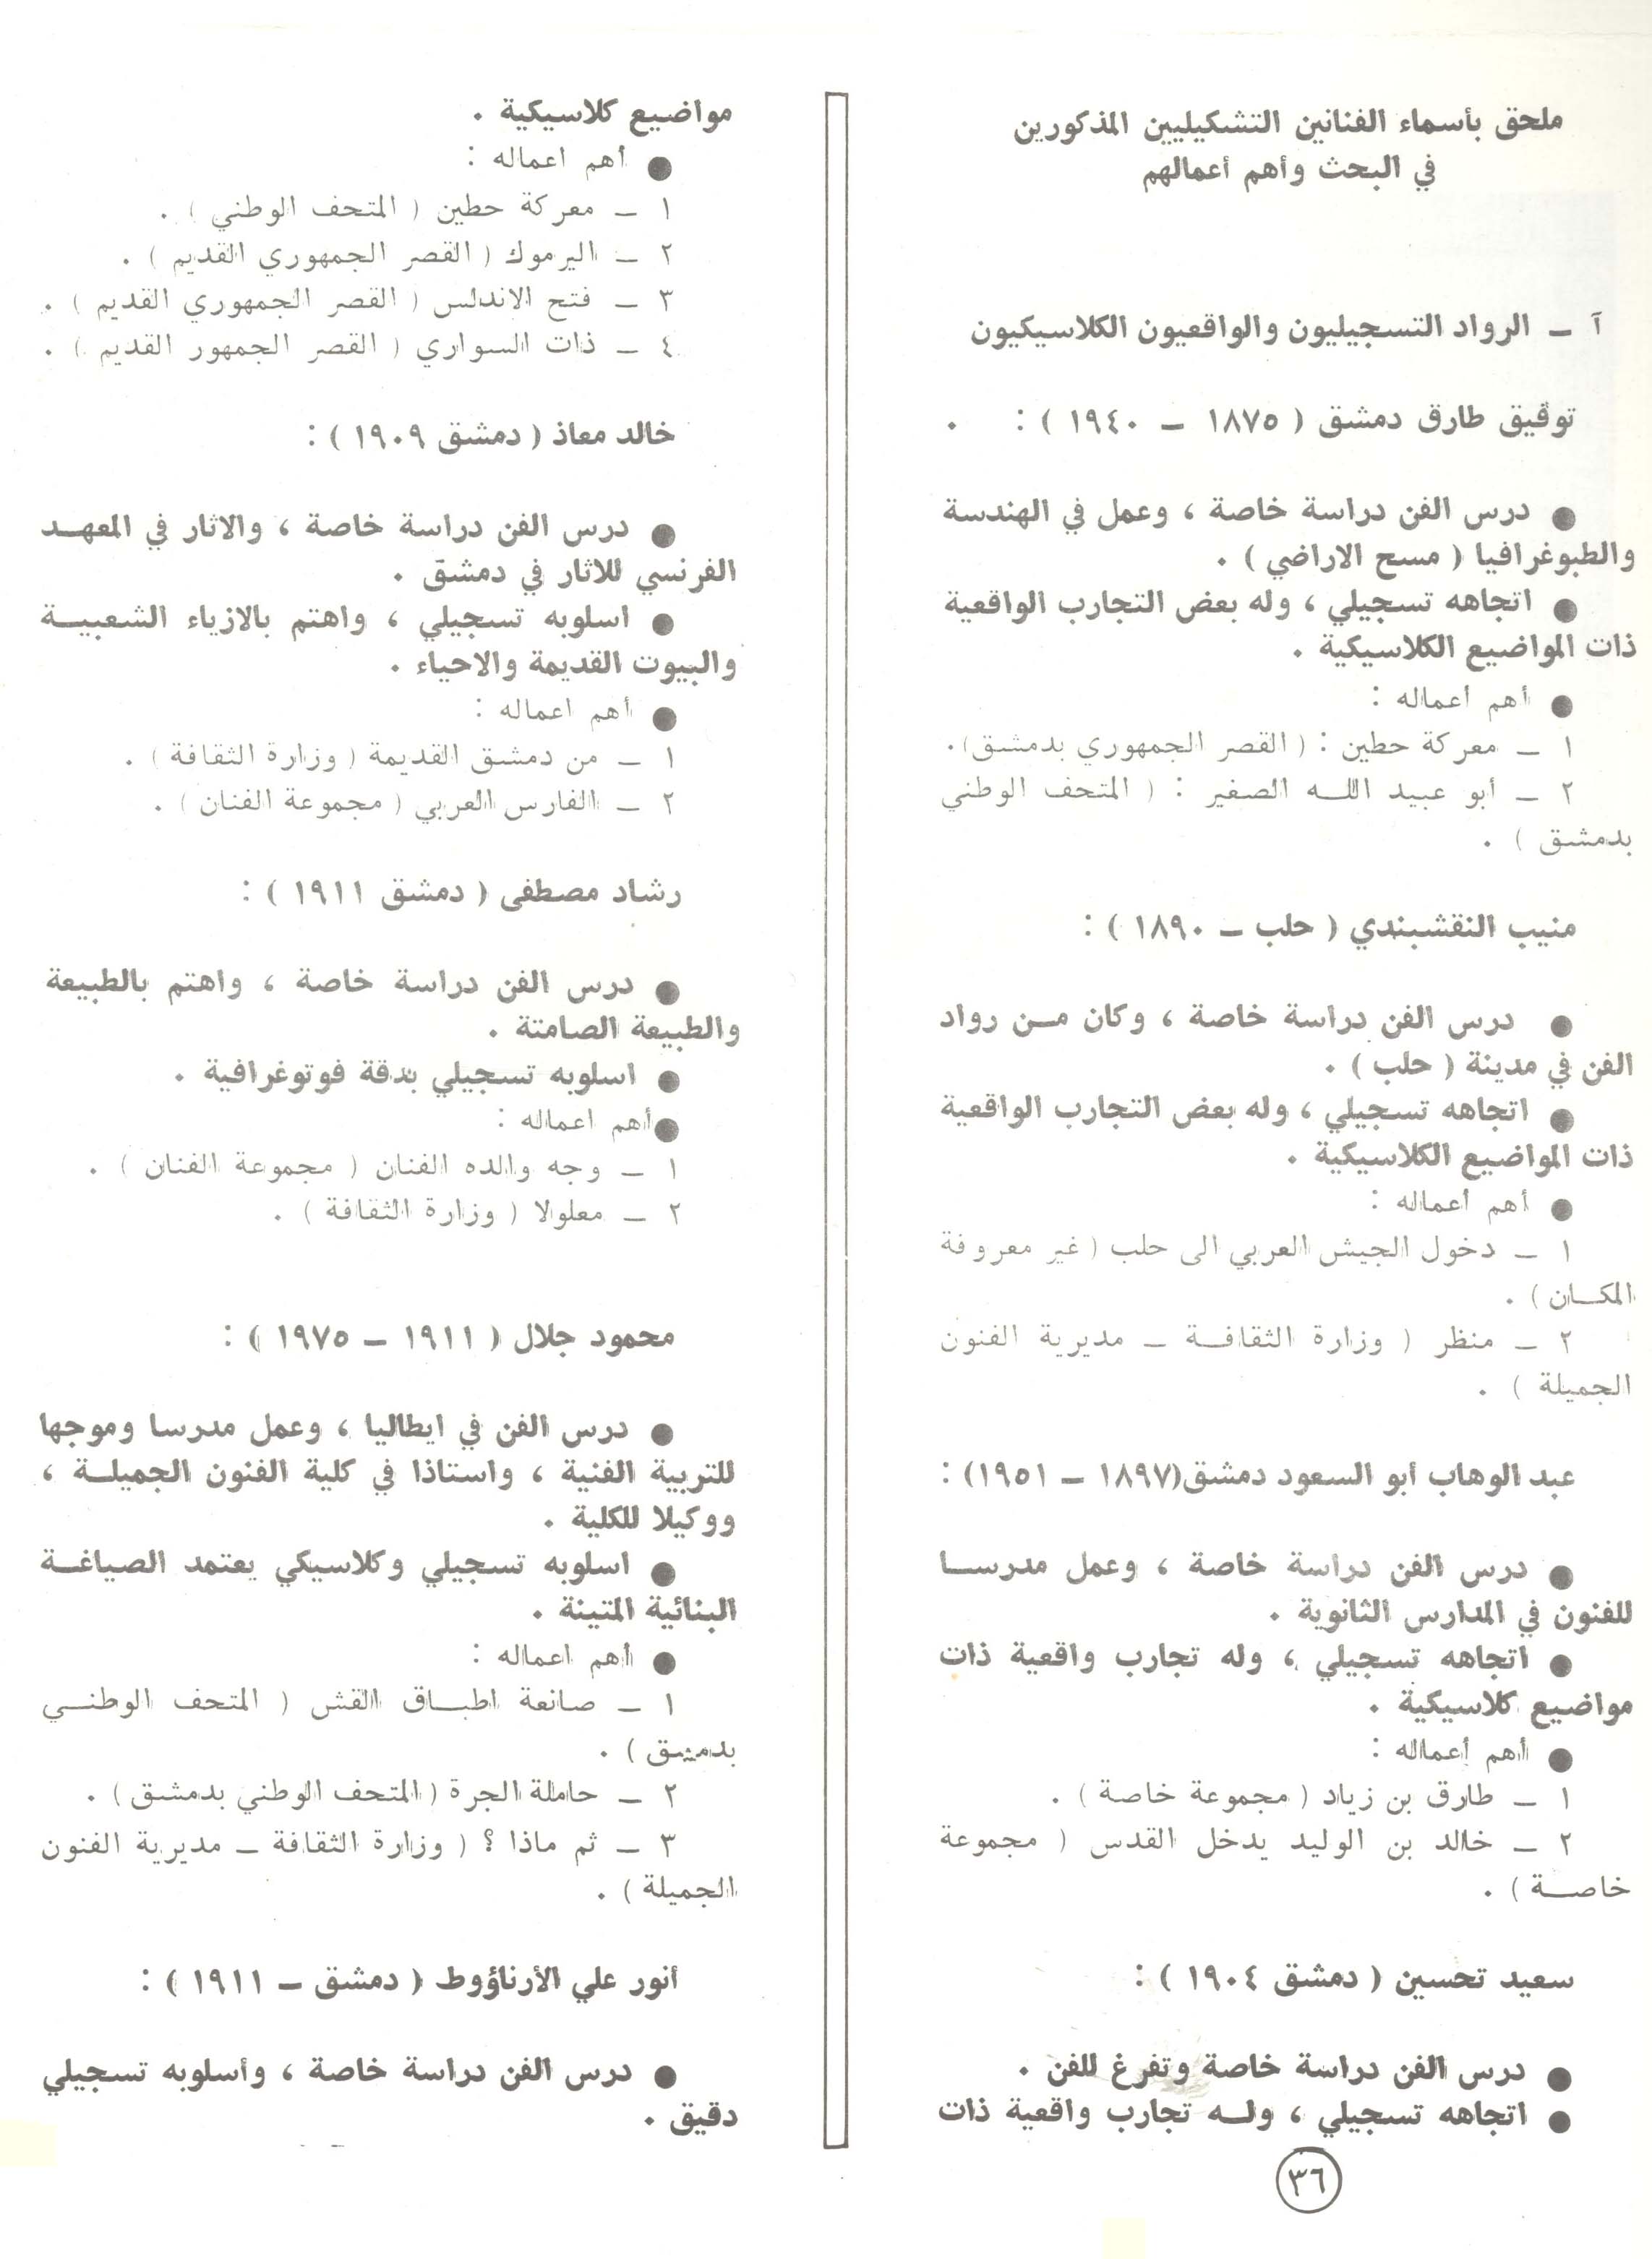 ملحق بأسماء الفنانين التشكيليين المذكورين
في البحث وأهم أعمالهم
آ ـ الرواد التسجيليون والواقعيون الكلاسيكيون
توفيق طارق دمشق ( ١٨٧٥ ـ ١٩٤٠ ) :
● درس الفن دراسة خاصة ، وعمل في الهندسة
والطبوغرافيا ( مسح الاراضي ) .
● اتجاهه تسجيلي ، وله بعض التجارب الواقعية
ذات المواضيع الكلاسيكية .
● أهم أعماله :
١ ـ معركة حطين : ( القصر الجمهوري بدمشق ) .
٢ ـ أبو عبيد اللـه الصغير : ( المتحف الوطني
بدمشق ) .
منيب النقشبندي ( حلب ـ ١٨٩٠ ) :
● درس الفن دراسة خاصة ، وكان مـن رواد
الفن في مدينة ( حلب ) .
● اتجاهه تسجيلي ، وله بعض التجارب الواقعية
ذات المواضيع الكلاسيكية .
● أهم أعماله :
١ ـ دخول الجيش العربي الى حلب ( غير معروفة
المكـان ) .
٢ ـ منظر ( وزارة الثقافـة ـ مديرية الفنون
الجميلة ) .
عبد الوهاب أبو السعود دمشق (١٨٩٧ ـ ١٩٥١) :
● درس الفن دراسة خاصة ، وعمل مدرسـا
للفنون في المدارس الثانوية .
● اتجاهه تسجيلي ، وله تجارب واقعية ذات
مواضيع كلاسيكية .
● أهم أعماله :
١ ـ طارق بن زياد ( مجموعة خاصة ) .
٢ ـ خالد بن الوليد يدخل القدس ( مجموعة
خاصـة ) .
سعيد تحسين ( دمشق ١٩٠٤ ) :
● درس الفن دراسة خاصة وتفرغ للفن .
● اتجاهه تسجيلي ، ولـه تجارب واقعية ذات
مواضيع كلاسيكية .
● أهم اعماله :
١ ـ معركة حطين ( المتحف الوطني ) .
٢ ـ اليرموك ( القصر الجمهوري القديم ) .
٣ ـ فتح الاندلس ( القصر الجمهوري القديم ) .
٤ ـ ذات السواري ( القصر الجمهور القديم ) .
خالد معاذ ( دمشق ١٩٠٩ ) :
● درس الفن دراسة خاصة ، والاثار في المعهـد
الفرنسي للاثار في دمشق .
● اسلوبه تسجيلي ، واهتم بالازياء الشعبيـة
والبيوت القديمة والاحياء .
● أهم اعماله :
١ ـ من دمشق القديمة ( وزارة الثقافة ) .
٢ ـ الفارس العربي ( مجموعة الفنان ) .
رشاد مصطفى ( دمشق ١٩١١ ) :
● درس الفن دراسة خاصة ، واهتم بالطبيعة
والطبيعة الصامتة .
● اسلوبه تسجيلي بدقة فوتوغرافية .
● أهم اعماله :
١ ـ وجه والده الفنان ( مجموعة الفنان ) .
٢ ـ معلولا ( وزارة الثقافة ) .
محمود جلال ( ١٩١١ ـ ١٩٧٥ ) :
● درس الفن في ايطاليا ، وعمل مدرسا وموجها
للتربية الفنية ، واستاذا في كلية الفنون الجميلـة ،
ووكيلا للكلية .
● اسلوبه تسجيلي وكلاسيكي يعتمد الصياغـة
البنائية المتينة .
● أهم اعماله :
١ ـ صانعة اطبـاق القش ( المتحف الوطنـي
بدمشق ) .
٢ ـ حاملة الجرة ( المتحف الوطني بدمشق ) .
٣ ـ ثم ماذا ؟ ( وزارة الثقافة ـ مديرية الفنون
الجميلة ) .
أنور علي الأرناؤوط ( دمشق ـ ١٩١١ ) :
● درس الفن دراسة خاصة ، وأسلوبه تسجيلي
دقيق .
٣٦